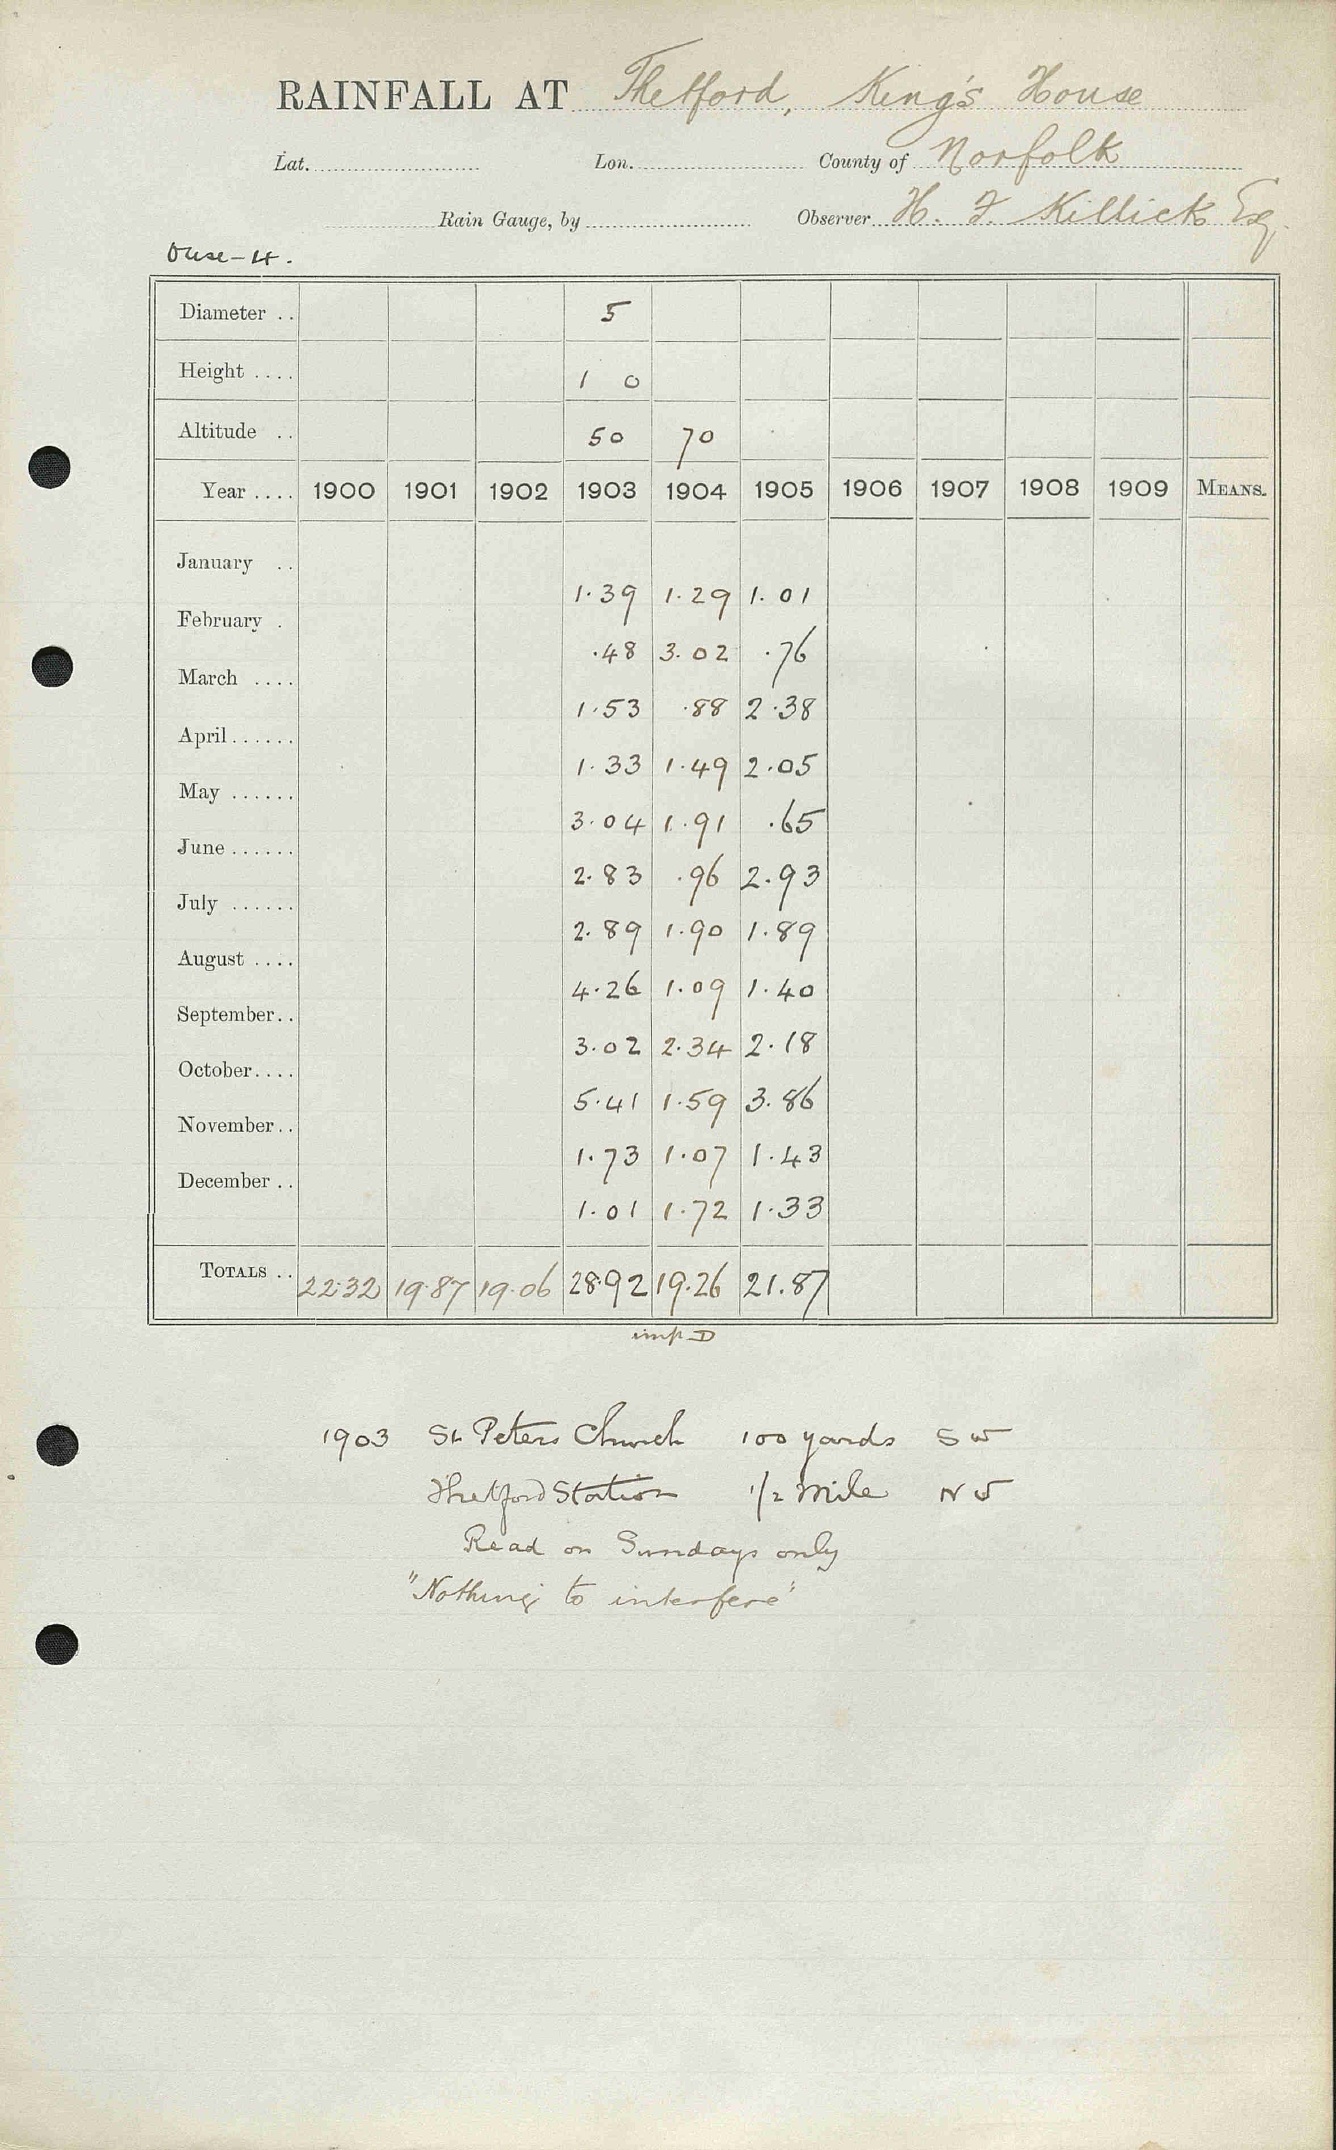 RAINFALL AT Thetford, King's House
Lat. Lon. County of Norfolk
Rain Gauge, by Observer H. F. Killick Esq
Ouse-4.
Diameter .. 5
Height .... 1 0
Altitude .. 50 70
Year .... 1900 1901 1902 1903 1904 1905 1906 1907 1908 1909 MEANS.
January .. 1.39 1.29 1.01
February . .48 3.02 .76
March .... 1.53 .88 2.38
April...... 1.33 1.49 2.05
May ...... 3.04 1.91 .65
June ...... 2.83 .96 2.93
July ...... 2.89 1.90 1.89
August .... 4.26 1.09 1.40
September.. 3.02 2.34 2.18
October.... 5.41 1.59 3.86
November.. 1.73 1.07 1.43
December .. 1.01 1.72 1.33
TOTALS .. 22.32 19.87 19.06 28.92 19.26 21.87
imp D
1903 St Peters Church 100 yards SW
Thetford Station 1/2 Mile NW
Read on Sundays only
"Nothing to interfere"